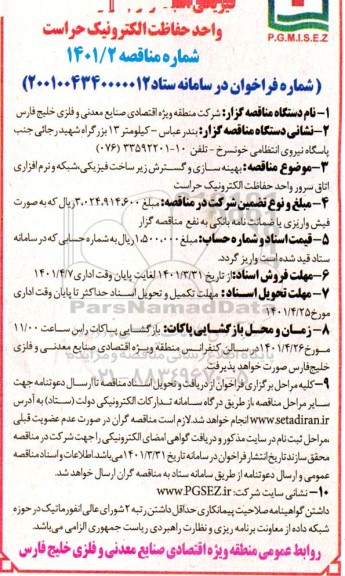 P.G.M.I.S.E.Z
واحد حفاظت الکترونیک حراست
شماره مناقصه ۱۴۰۱/۲
( شماره فراخوان در سامانه ستاد ۲۰۰۱۰۰۴۳۴۰۰۰۰۰۱۲)
۱- نام دستگاه مناقصه گزار: شرکت منطقه ویژه اقتصادی صنایع معدنی و فلزی خلیج فارس
۲- نشانی دستگاه مناقصه گزار: بندرعباس - کیلومتر ۱۳ بزرگراه شهید رجائی جنب
پاسگاه نیروی انتظامی خونسرخ - تلفن ۱۰-۳۳۵۹۲۲۰۱ (۰۷۶)
۳- موضوع مناقصه: بهینه سازی و گسترش زیر ساخت فیزیکی، شبکه و نرم افزاری
اتاق سرور واحد حفاظت الکترونیک حراست
۴- مبلغ و نوع تضمین شرکت در مناقصه: مبلغ ۳.۰۲۴.۹۱۴.۶۰۰ ریال که به صورت
فیش واریزی یا ضمانت نامه بانکی به نفع مناقصه گزار
۵- قیمت اسناد و شماره حساب: مبلغ ۱.۵۰۰.۰۰۰ ریال به شماره حسابی که در سامانه
ستاد قید شده است واریز گردد.
۶- مهلت فروش اسناد: از تاریخ ۱۴۰۱/۳/۳۱ لغایت پایان وقت اداری ۱۴۰۱/۴/۷
۷- مهلت تحویل اسناد: مهلت تکمیل و تحویل اسناد حداکثر تا پایان وقت اداری
مورخ ۱۴۰۱/۴/۲۵
۸- زمان و محل بازگشایی پاکات: بازگشایی پاکات راس ساعت ۱۱/۰۰
مورخ ۱۴۰۱/۴/۲۶ در سالن کنفرانس منطقه ویژه اقتصادی صنایع معدنی و فلزی
خلیج فارس صورت خواهد پذیرفت
۹- کلیه مراحل برگزاری فراخوان از دریافت و تحویل اسناد مناقصه تا ارسال دعوتنامه جهت
سایر مراحل مناقصه، از طریق درگاه سامانه تدارکات الکترونیکی دولت (ستاد) به آدرس
www.setadiran.ir انجام خواهد شد. لازم است مناقصه گران در صورت عدم عضویت قبلی
،مراحل ثبت نام در سایت مذکور و دریافت گواهی امضای الکترونیکی را جهت شرکت در مناقصه
محقق سازند تاریخ انتشار فراخوان در سامانه تاریخ ۱۴۰۱/۳/۳۱ می باشد. اطلاعات و اسناد مناقصه
عمومی و ارسال دعوتنامه از طریق سامانه ستاد به مناقصه گران ارسال خواهد شد.
۱۰- نشانی سایت شرکت: www.PGSEZ.ir
داشتن گواهینامه صلاحیت پیمانکاری حداقل داشتن رتبه ۷ شورای عالی انفورماتیک در حوزه
شبکه داده از معاونت برنامه ریزی و نظارت راهبردی ریاست جمهوری الزامی می باشد.
روابط عمومی منطقه ویژه اقتصادی صنایع معدنی و فلزی خلیج فارس